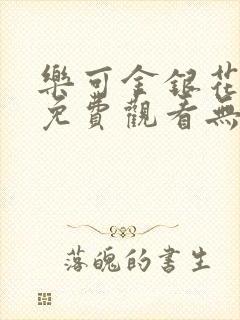 樂可金銀花
免費觀看無
落魄的書生